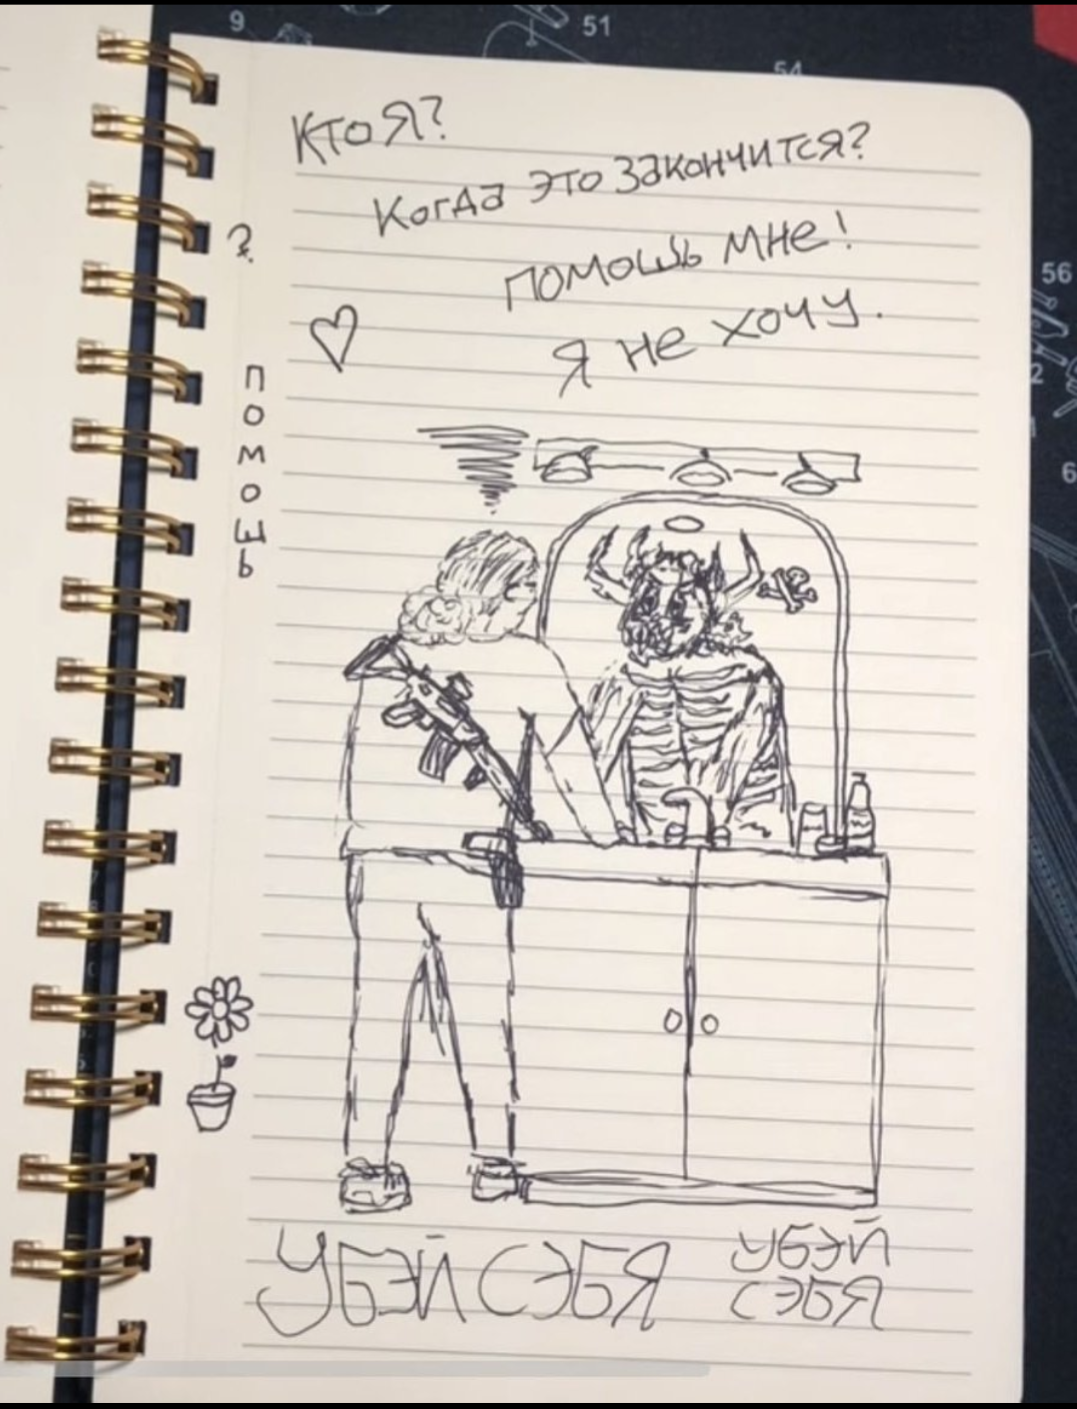 9
51
54
Кто Я?
Когда это закончится?
?
помошь мне!
Я не хочу.
56
2
помошь
6
УБЭЙ СЭБЯ
УБЭЙ
СЭБЯ